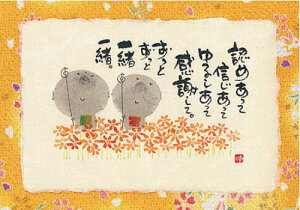 認めあって
信じあって
ゆるしあって
感謝して。
ずっと
ずっと
一緒
一緒。